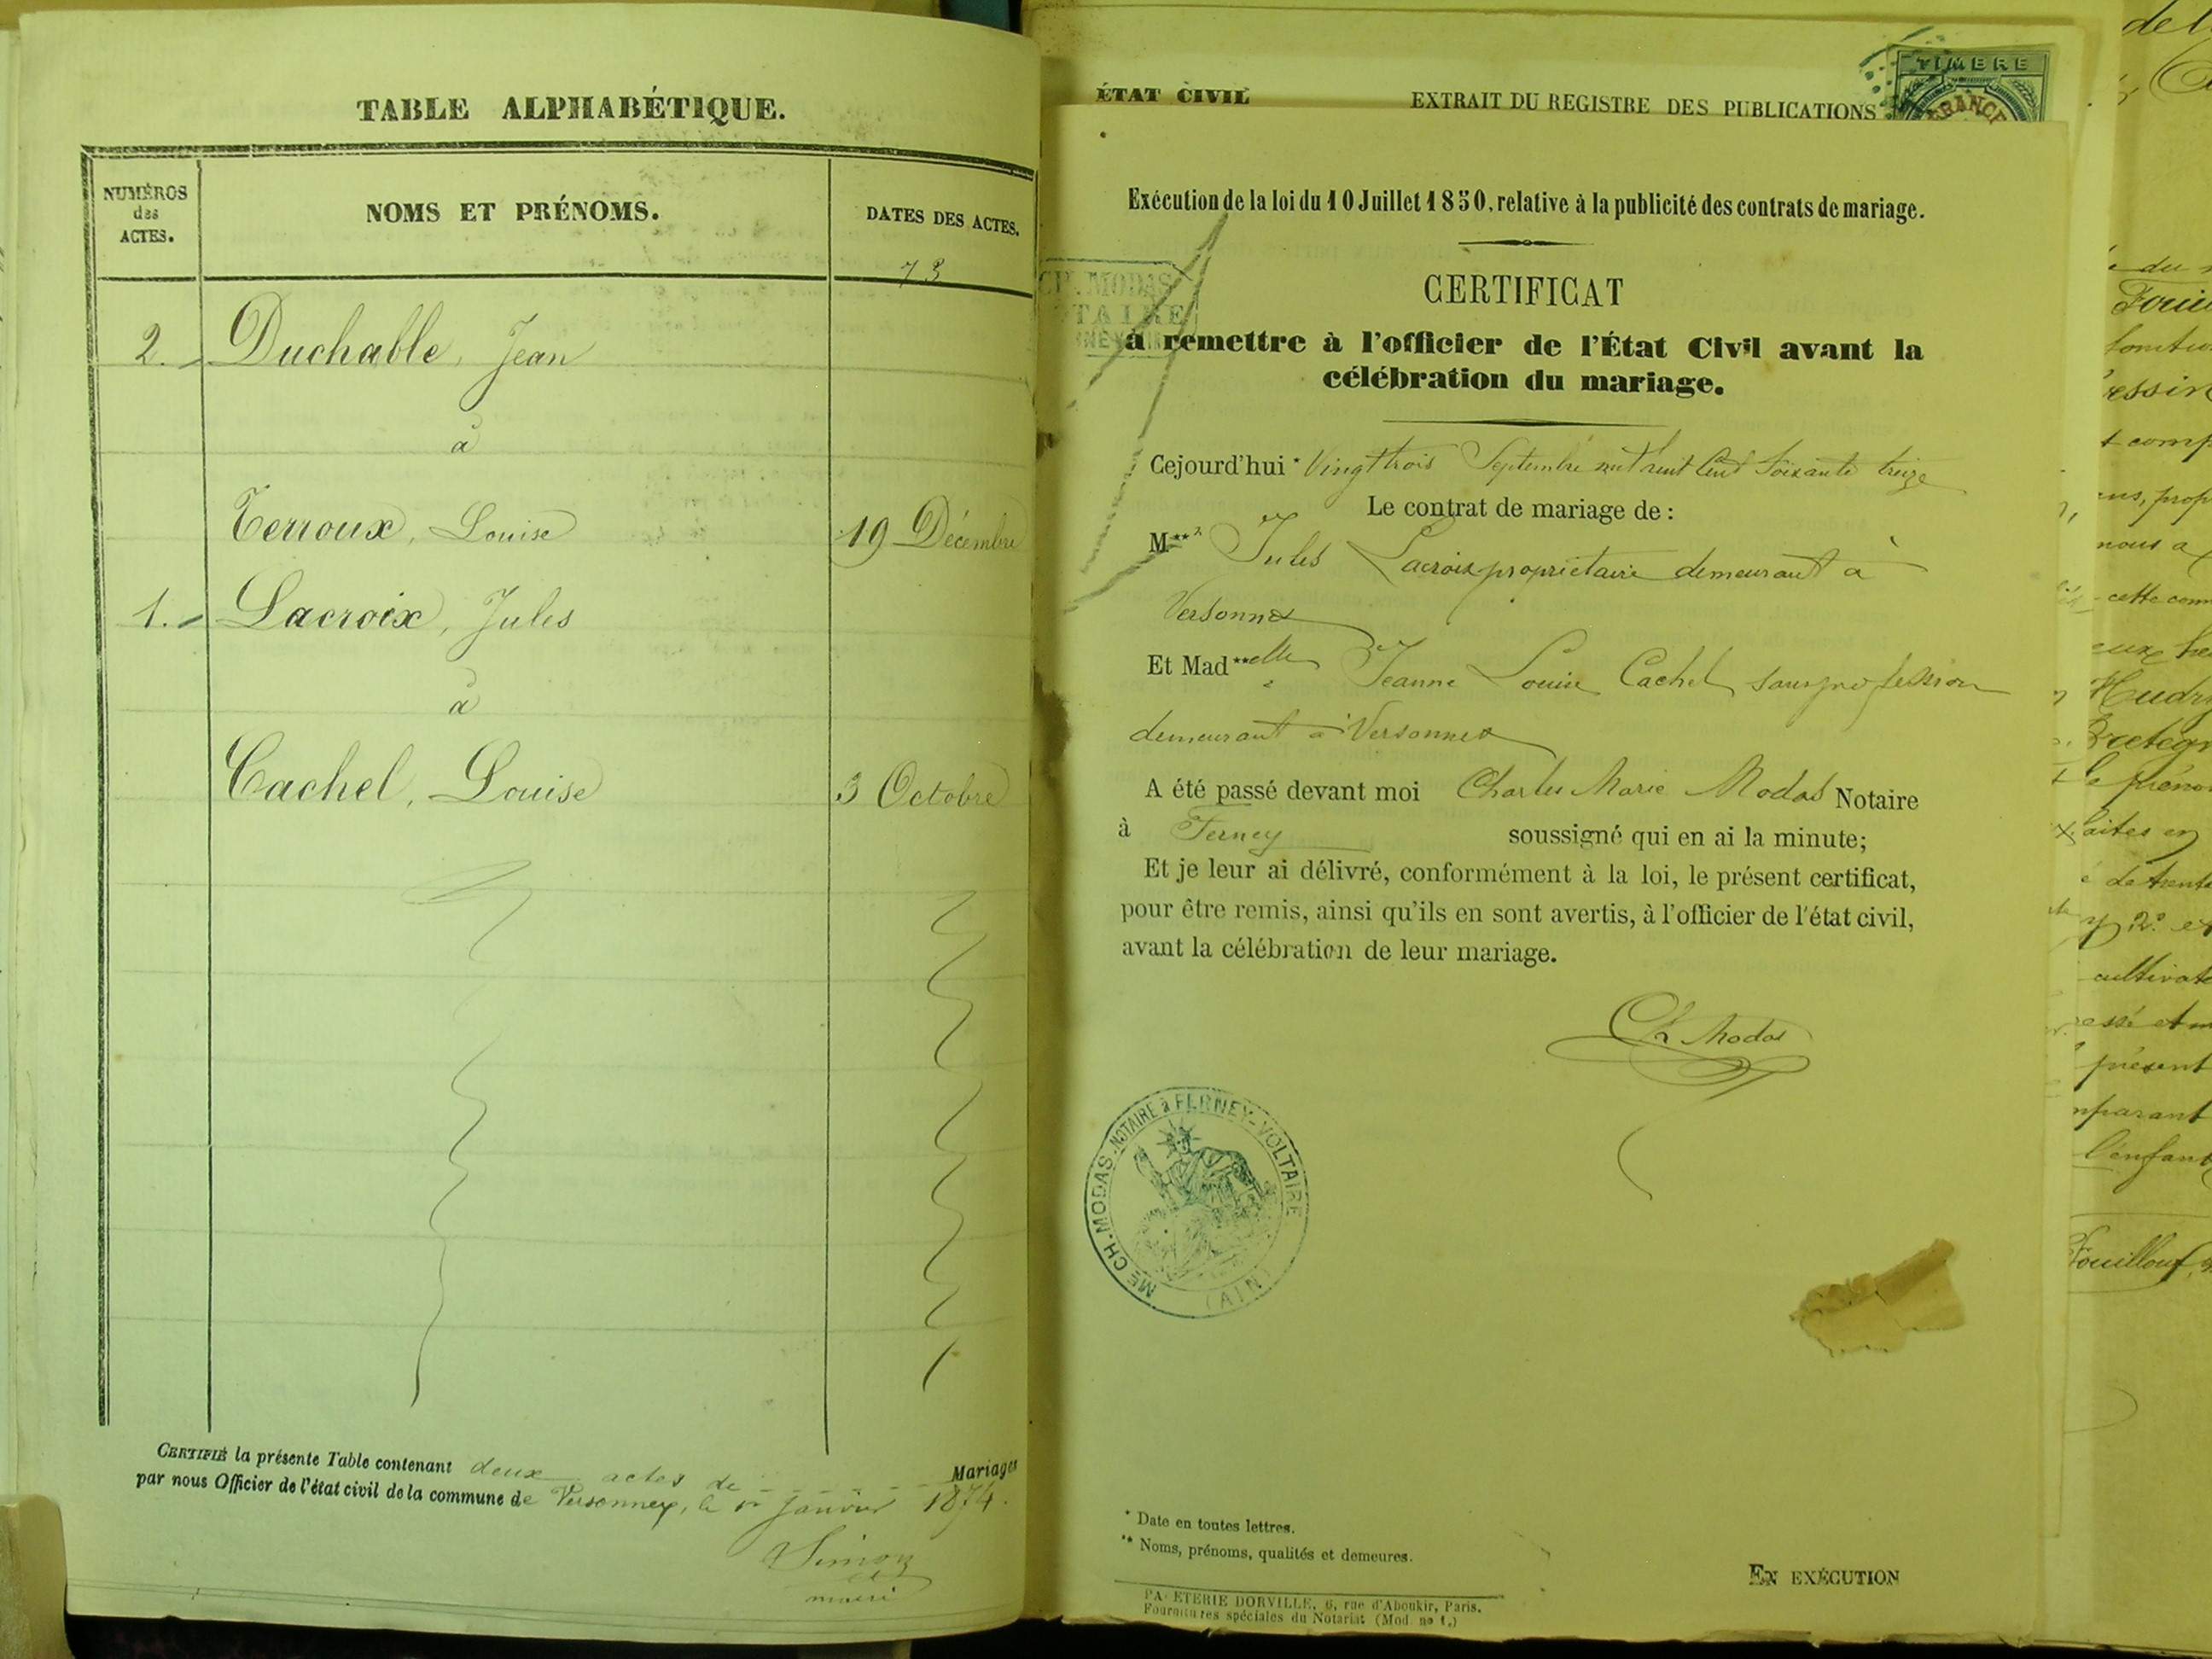 TABLE ALPHABÉTIQUE.
NUMÉROS
des
ACTES.
NOMS ET PRÉNOMS.
DATES DES ACTES.
73
2. Duchable, Jean
à
Terroux, Louise 19 Décembre
1. Lacroix, Jules
à
Cachel, Louise 3 Octobre
CERTIFIÉ la présente Table contenant deux actes de Mariages
par nous Officier de l'état civil de la commune de Versonnex, le 1er Janvier 1874.
Simon
maire
ÉTAT CIVIL
EXTRAIT DU REGISTRE DES PUBLICATIONS
TIMBRE
FRANCE
Exécution de la loi du 10 Juillet 1850, relative à la publicité des contrats de mariage.
CH. MODAS
NOTAIRE
CERTIFICAT
à remettre à l'officier de l'État Civil avant la
célébration du mariage.
Cejourd'hui * Vingt trois Septembre mil huit Cent Soixante treize
Le contrat de mariage de :
M** r Jules Lacroix propriétaire demeurant à
Versonnex
Et Mad** elle Jeanne Louise Cachel sans profession
demeurant à Versonnex
A été passé devant moi Charles Marie Modas Notaire
à Ferney soussigné qui en ai la minute;
Et je leur ai délivré, conformément à la loi, le présent certificat,
pour être remis, ainsi qu'ils en sont avertis, à l'officier de l'état civil,
avant la célébration de leur mariage.
Ch Modas
Me CH. MODAS, NOTAIRE à FERNEY-VOLTAIRE
(AIN)
* Date en toutes lettres.
** Noms, prénoms, qualités et demeures.
EN EXÉCUTION
PAPETERIE DORVILLE, 6, rue d'Aboukir, Paris.
Fournitures spéciales du Notariat (Mod. no 1.)
du
comp
nous a
cette com
cultivat
présent
mparant
l'enfant